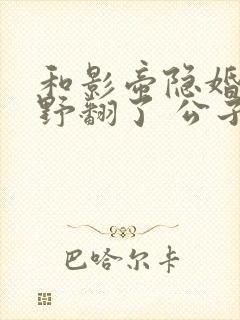 和影帝隐婚
野翻了 公子
巴哈尔卡